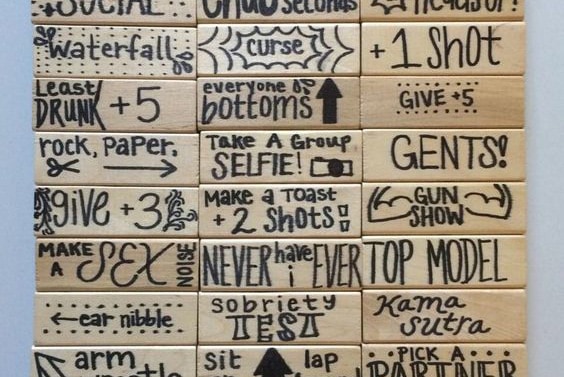 +SOCIAL
chug
seconds
heads or!
waterfall
curse
+ 1 Shot
Least
DRUNK +5
everyone
bottoms
GIVE +5
rock, PAPER,
TAKE A Group
SELFIE!
GENTS!
give +3
MAKE a TOAST
+ 2 SHOTS!
GUN
SHOW
MAKE
A SEX NOISE
NEVER have i EVER
TOP MODEL
ear nibble
sobriety
TEST
Kama
Sutra
arm
sit
lap
PICK A
PARTNER